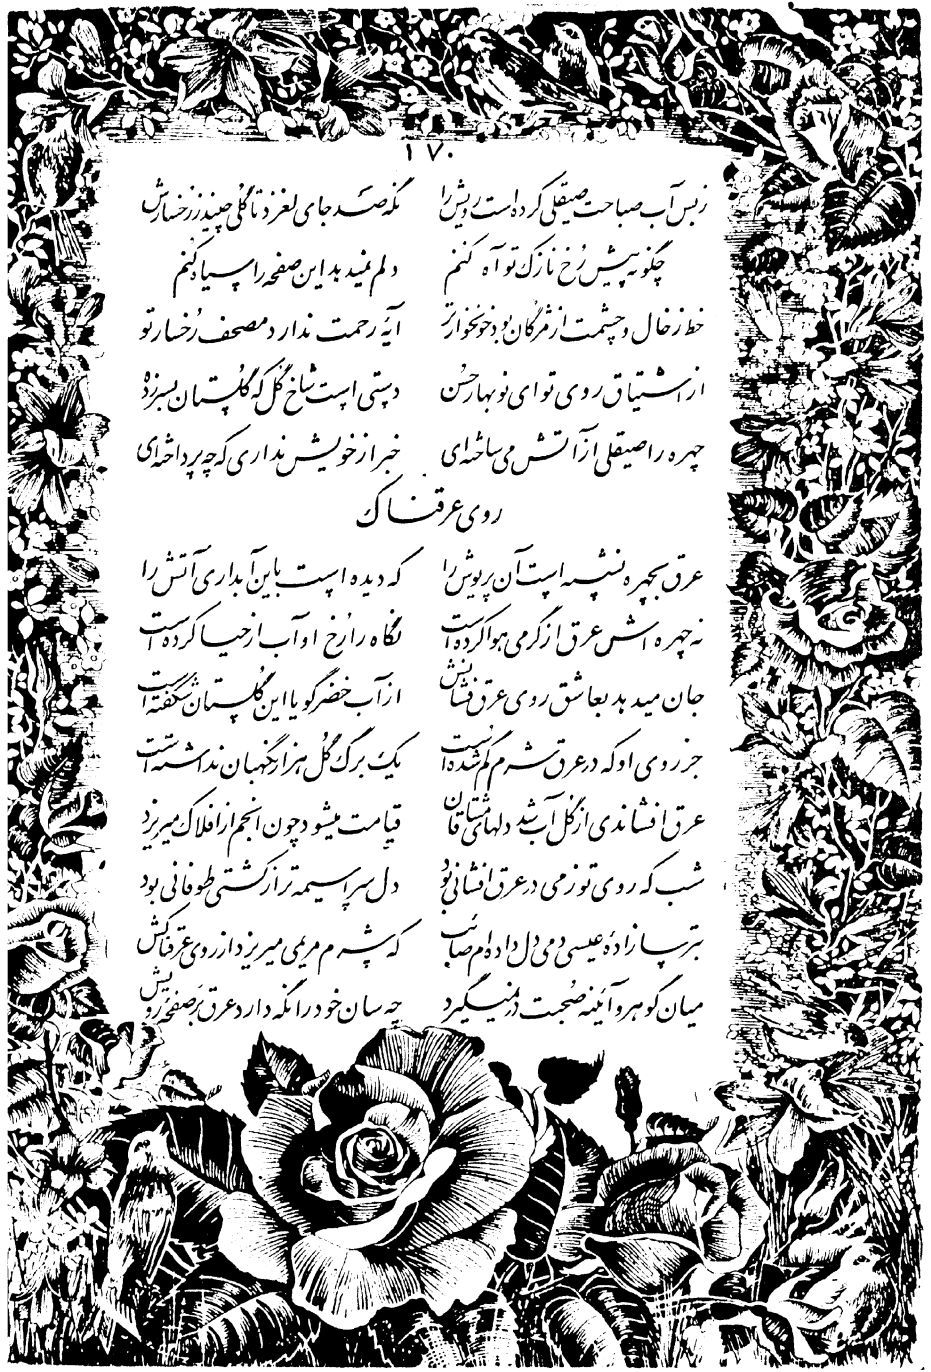 ۱۷۰
زبس آب صباحت صیقلی کرده است رویش را نگه صد جای لغزد تا گلی چیند ز رخسارش
چگونه پیش رُخ نازک تو آه کنم دلم نمیدهد این صفحه را سیاه کنم
خط ز خال و چشمت از مژگان بود خونخوارتر آیهٔ رحمت ندارد مصحف رُخسار تو
از اشتیاق روی تو ای نوبهار حُسن دستی است شاخ گُل که گلستان بسر زده
چهره را صیقلی از آتش می ساخته‌ای خبر از خویش نداری که چه پرداخته‌ای
روی عرقناک
عرق بچهره نشسته است آن پریوش را که دیده است باین آبداری آتش را
نه چهره اش عرق از گرمی هوا کرده است نگاه را رُخ او آب از حیا کرده است
جان میدهد بعاشق روی عرق فشانش از آب خضر گویا این گُلستان شکفته است
جز روی او که در عرق شرم گم شده است یک برگ گُل هزار نگهبان نداشته است
عرق افشاندی از گُل آب شد دلهای مشتاقان قیامت میشود چون انجم از افلاک میریزد
شب که روی تو ز می در عرق افشانی بود دل سراسیمه تر از کشتی طوفانی بود
بترسا زادهٔ عیسی دمی دل داده ام صائب که شرم مریمی میریزد از روی عرقناکش
میان گوهر و آئینه صُحبت در نمیگیرد چه سان خود را نگه دارد عرق بر صفحهٔ رویش